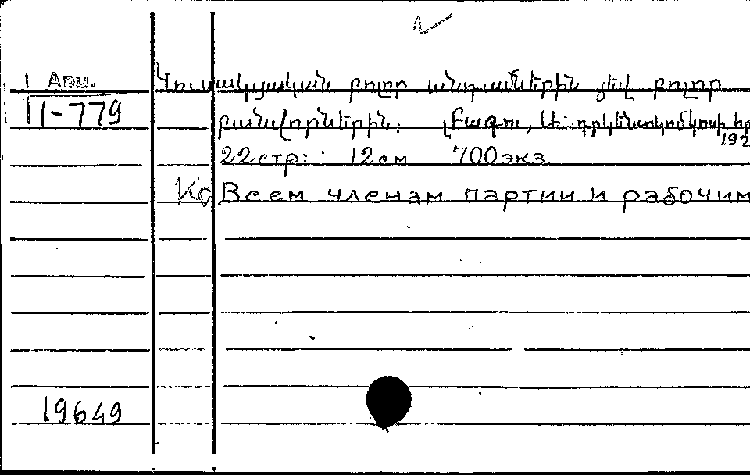 1 Арм.
11-779
Կուսակցական բոլոր անդամներին յեվ բոլոր
բանվորներին: Բագու,
192
22 стр: 12 см 700 экз
Ко Всем членам партии и рабочим
19649